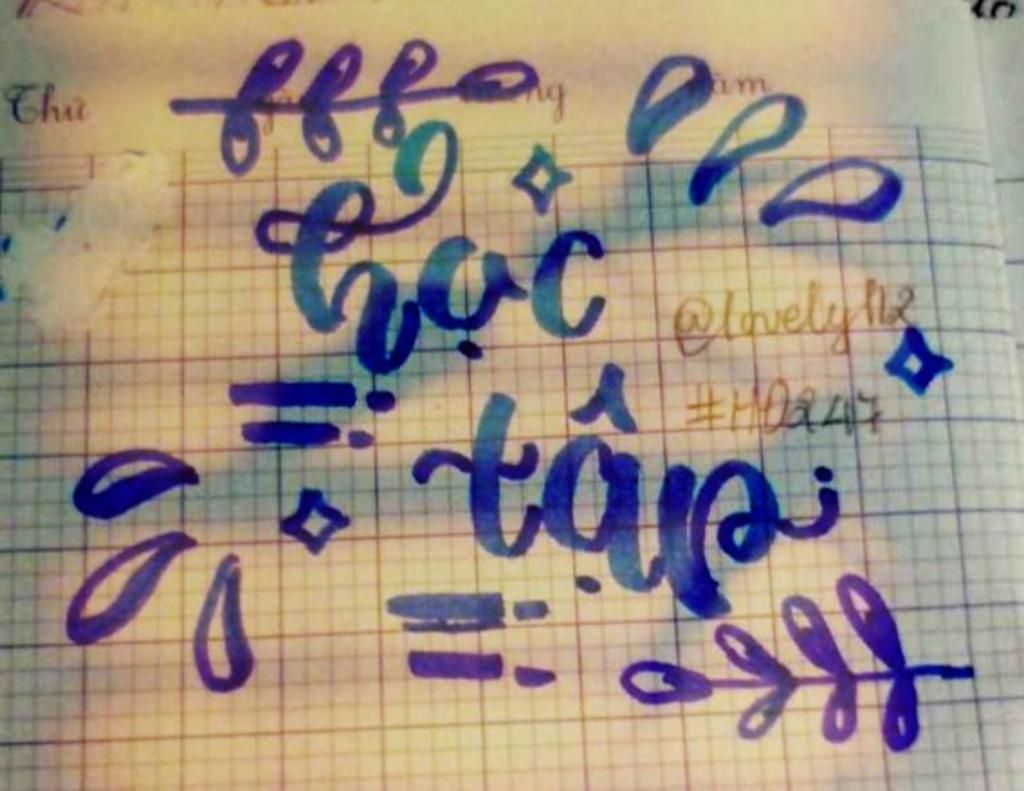 Thứ ngày tháng năm
học
@lovelyn2
#HD247
tập